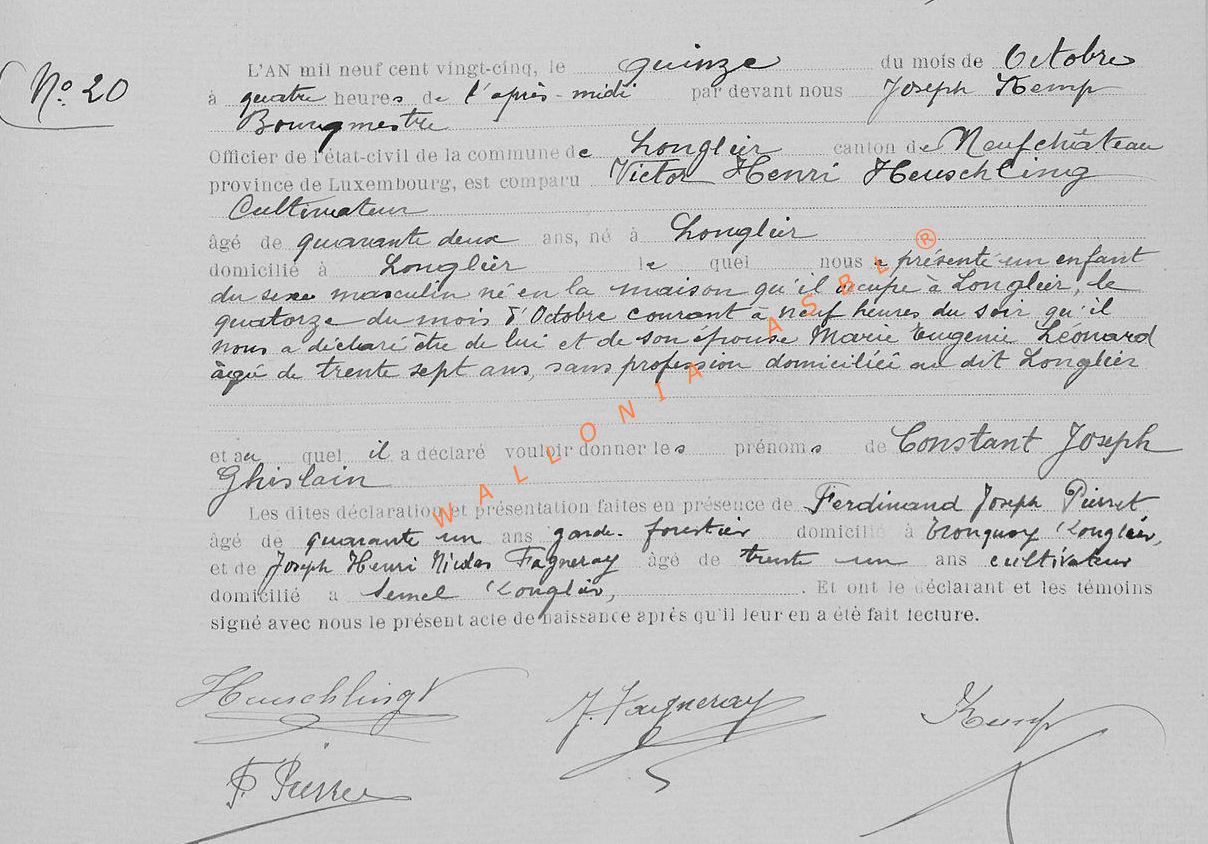 N° 20
L'AN mil neuf cent vingt-cinq, le quinze du mois de Octobre
à quatre heures de l'après-midi par devant nous Joseph Kemp
Bourgmestre
Officier de l'état-civil de la commune de Longlier canton de Neufchâteau
province de Luxembourg, est comparu Victor Henri Heuschling
Cultivateur
âgé de quarante deux ans, né à Longlier
domicilié à Longlier le quel nous a présenté un enfant
du sexe masculin né en la maison qu'il occupe à Longlier, le
quatorze du mois d'Octobre courant à neuf heures du soir qu'il
nous a déclaré être de lui et de son épouse Marie Eugénie Léonard
âgée de trente sept ans, sans profession domiciliée au dit Longlier
et au quel il a déclaré vouloir donner les prénoms de Constant Joseph
Ghislain
Les dites déclaration et présentation faites en présence de Ferdinand Joseph Pierret
âgé de quarante un ans garde-forestier domicilié à Tronquoy (Longlier,
et de Joseph Henri Nicolas Fagneray âgé de trente un ans cultivateur
domicilié a Semel (Longlier, . Et ont le déclarant et les témoins
signé avec nous le présent acte de naissance après qu'il leur en a été fait lecture.
Heuschling V J. Fagneray Kemp
F. Pierret
WALLONIA ASBL ®